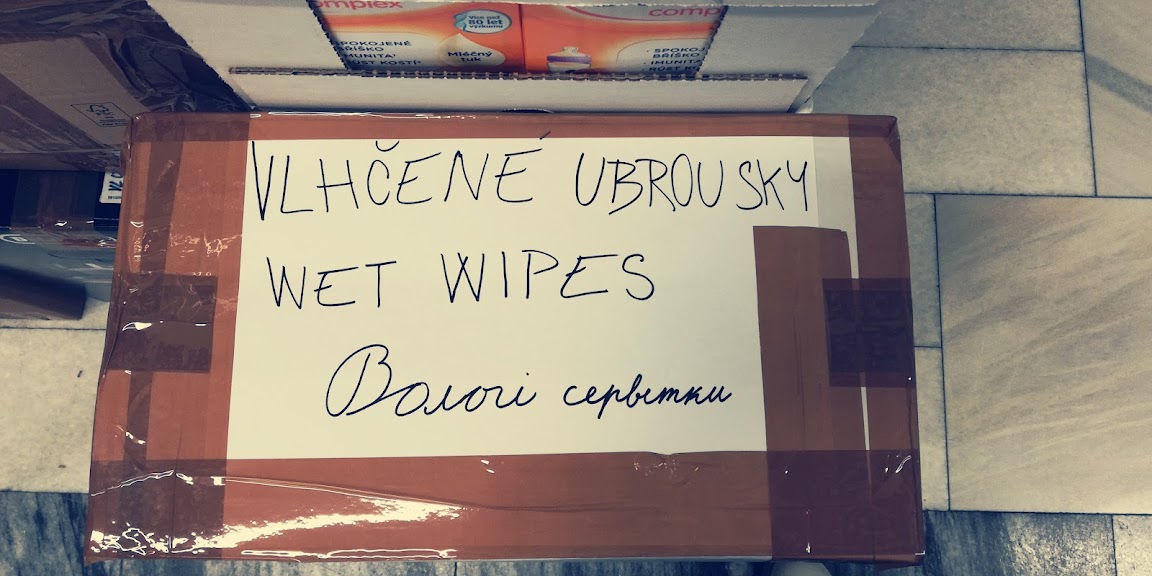 complex
Více než
80 let
výzkumu
SPOKOJENÉ
BŘÍŠKO
IMUNITA
RŮST KOSTÍ
Mléčný
tuk
comp
SPOKOJ
BŘÍŠKO
IMUNITA
RŮST KOSTÍ
VLHČENÉ UBROUSKY
WET WIPES
Вологі серветки